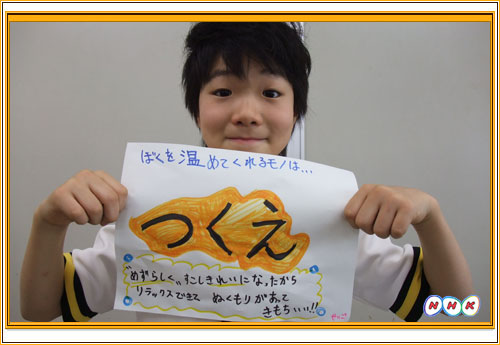 ぼくを温めてくれるモノは...
つくえ
"めずらしく"すこしきれいになったから
リラックスできて ぬくもりがあって
きもちいい!!
NHK